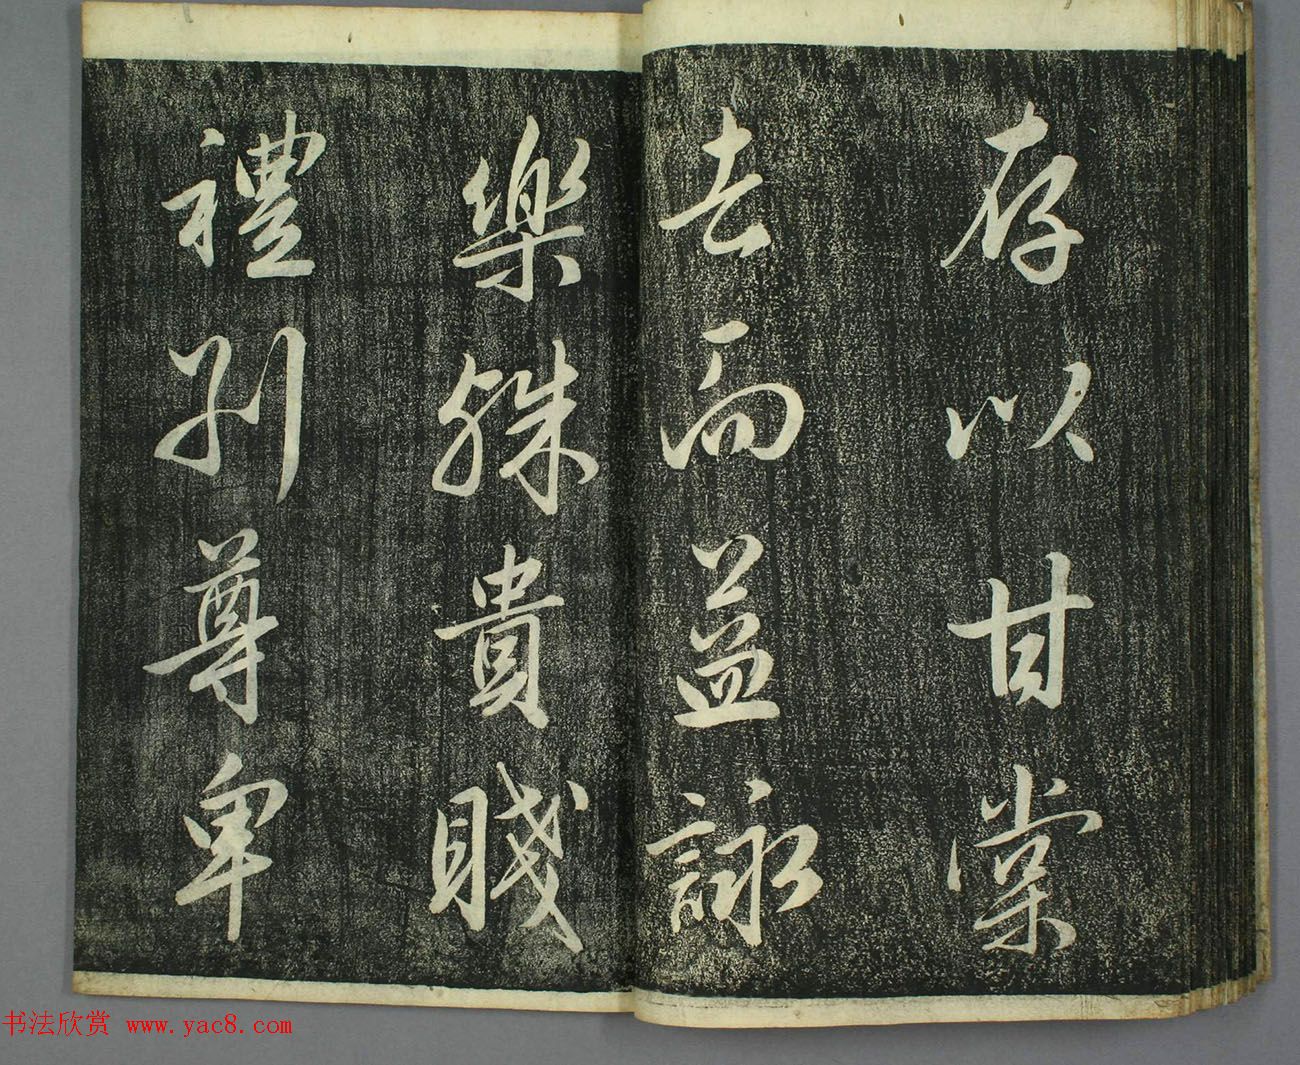 存以甘棠
去而益詠
樂殊貴賤
禮別尊卑
书法欣赏 www.yac8.com